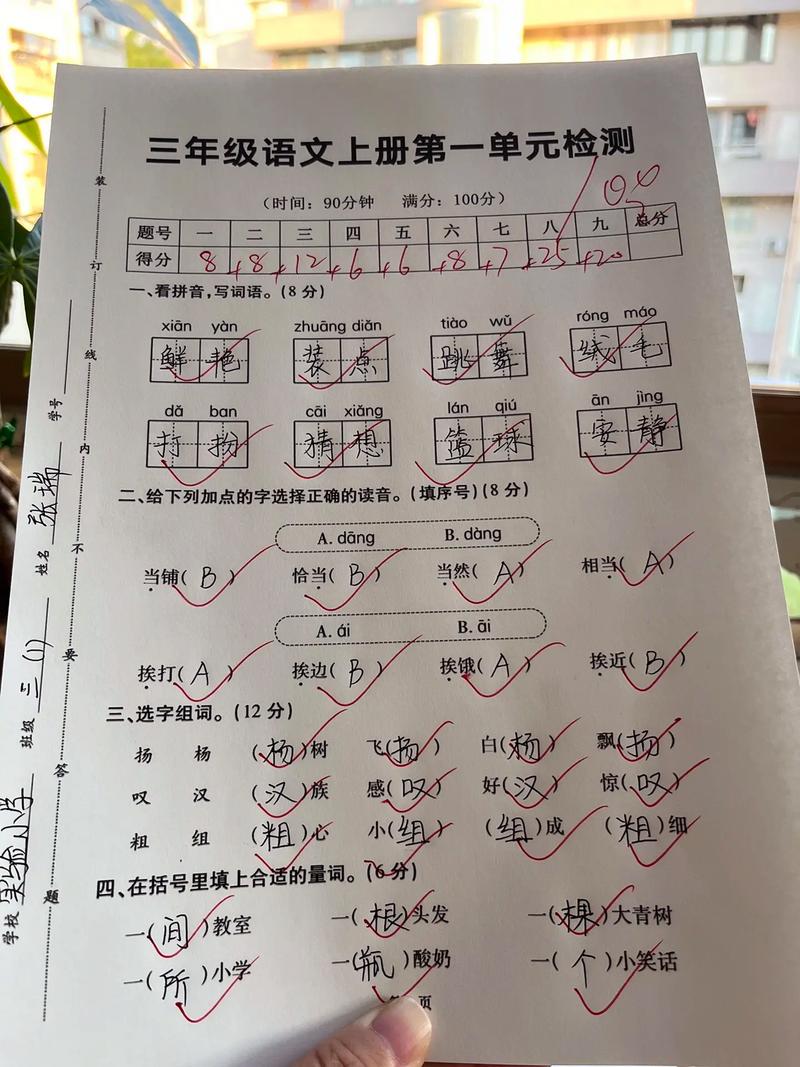 三年级语文上册第一单元检测
（时间：90分钟 满分：100分）
题号 一 二 三 四 五 六 七 八 九 总分
得分 8 +8 +12 +6 +6 +8 +7 +25 +20
一、看拼音，写词语。(8分)
xiān yàn zhuāng diǎn tiào wǔ róng máo
鲜艳 装点 跳舞 绒毛
dǎ ban cāi xiǎng lán qiú ān jìng
打扮 猜想 篮球 安静
二、给下列加点的字选择正确的读音。(填序号)(8分)
A. dāng B. dàng
当铺( B ) 恰当( B ) 当然( A ) 相当( A )
A. ái B. āi
挨打( A ) 挨边( B ) 挨饿( A ) 挨近( B )
三、选字组词。(12分)
扬 杨 (杨)树 飞(扬) 白(杨) 飘(扬)
叹 汉 (汉)族 感(叹) 好(汉) 惊(叹)
粗 组 (粗)心 小(组) (组)成 (粗)细
四、在括号里填上合适的量词。(6分)
一(间)教室 一(根)头发 一(棵)大青树
一(所)小学 一(瓶)酸奶 一(个)小笑话
页
装 订 线 内 不 要 答 题
学校 实验小学 班级 三(1) 姓名 张瑞 学号